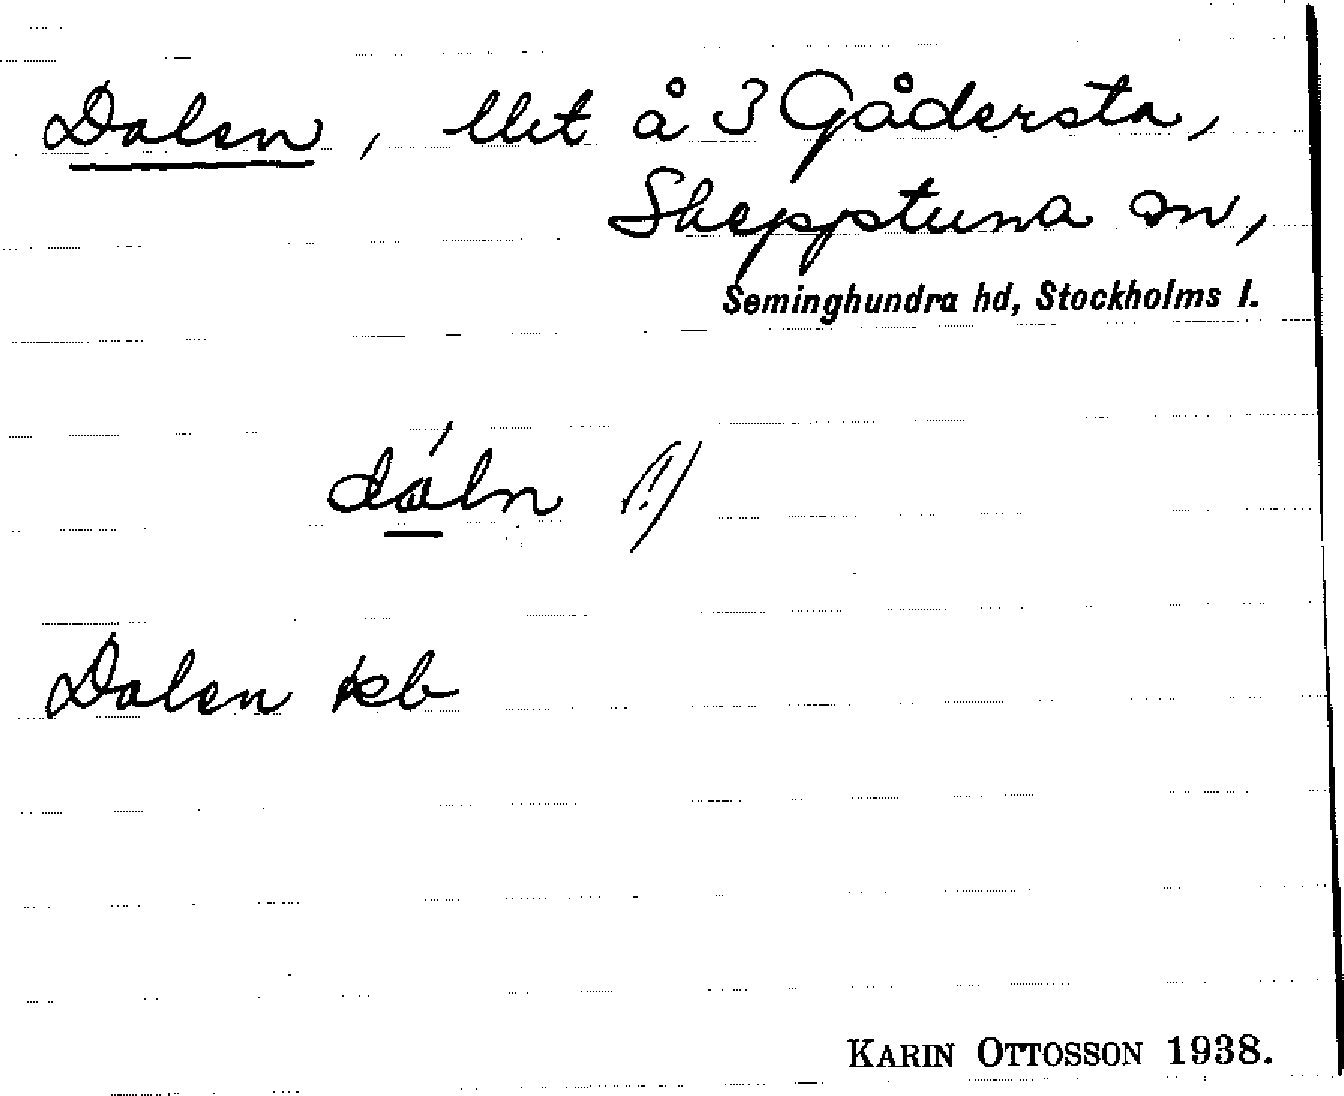 Dalen, llet å 3 Gådersta,
Skepptuna sn,
Seminghundra hd, Stockholms l.
dáln (!)
Dalen kb
KARIN OTTOSSON 1938.